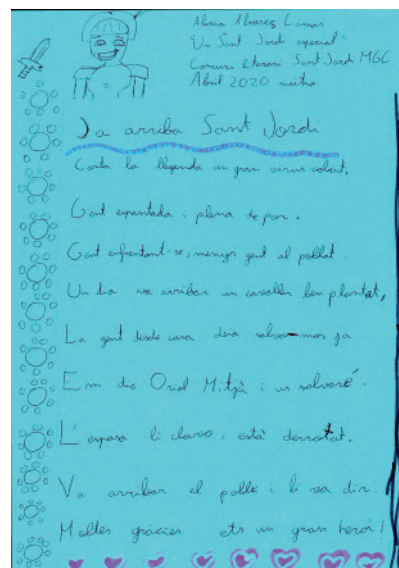 Alexia Alvarez Lamas
"Un Sant Jordi especial"
Concurs literari Sant Jordi MGC
Abril 2020
Ja arriba Sant Jordi
Conta la llegenda un gran virus volant.
Gent espantada i plena de por.
Gent enfrentant-se, menys gent al poblat.
Un dia va arribar un cavaller ben plantat,
La gent desde casa deia salva-nos ja
Em dic Oriol Mitjà i us salvaré.
L'espasa li clavo, està derrotat.
Va arribar el poble i li va dir.
Moltes gràcies ets un gran heroi!